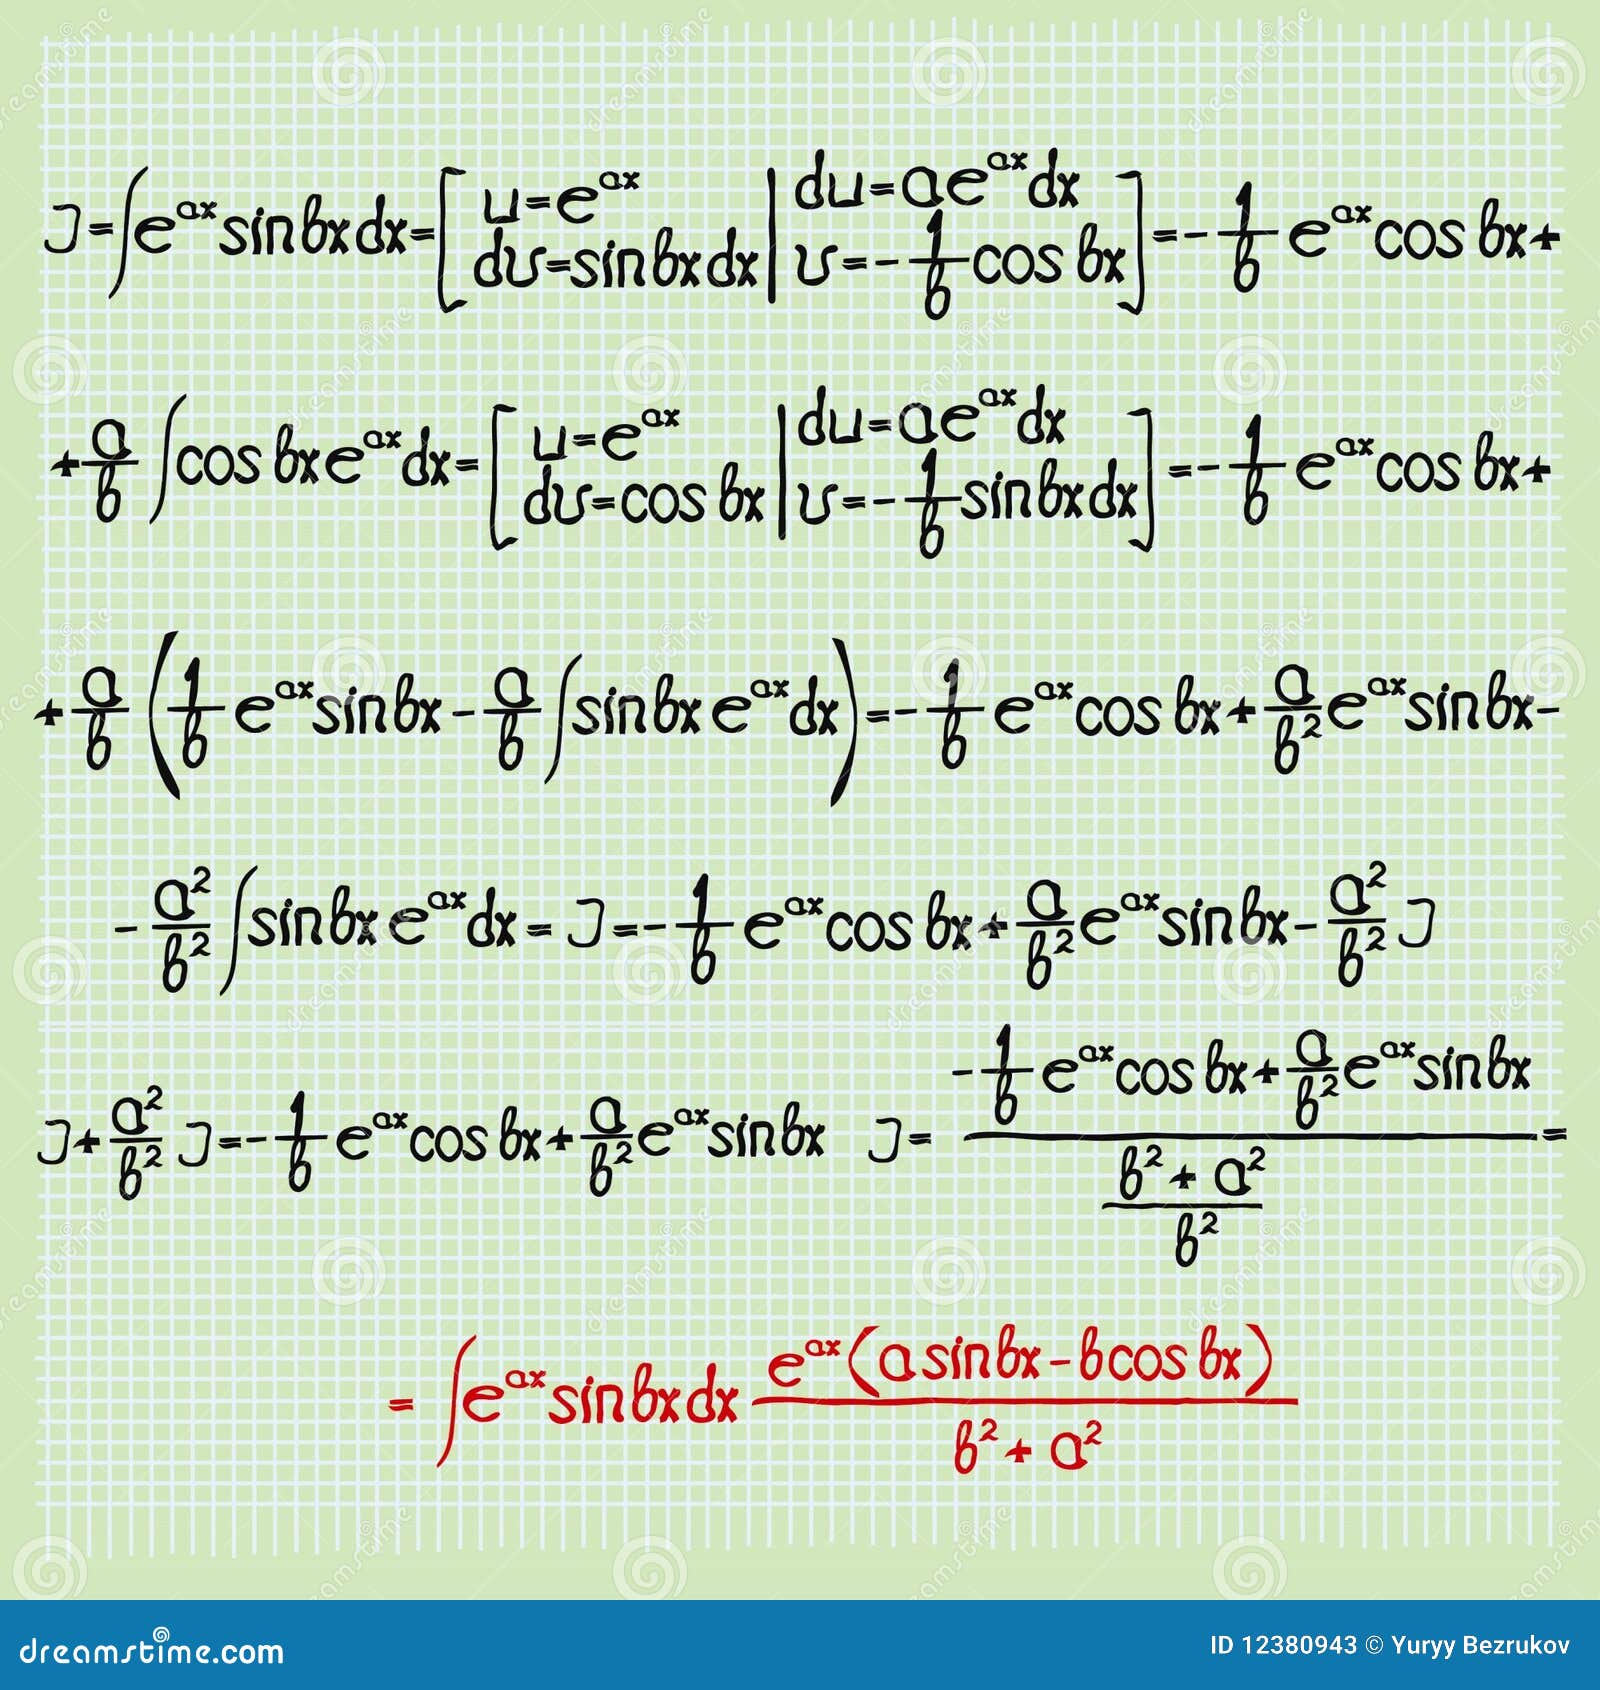 J=∫e^{ax}sinbxdx=[u=e^{ax} dv=sinbxdx | du=ae^{ax}dx v=-\frac{1}{b}cos bx]=-\frac{1}{b}e^{ax}cos bx+
+\frac{a}{b}∫cos bxe^{ax}dx=[u=e^{ax} dv=cos bx | du=ae^{ax}dx v=-\frac{1}{b}sinbxdx]=-\frac{1}{b}e^{ax}cos bx+
+\frac{a}{b}(\frac{1}{b}e^{ax}sinbx-\frac{a}{b}∫sinbxe^{ax}dx)=-\frac{1}{b}e^{ax}cos bx+\frac{a}{b^2}e^{ax}sinbx-
-\frac{a^2}{b^2}∫sinbxe^{ax}dx=J=-\frac{1}{b}e^{ax}cos bx+\frac{a}{b^2}e^{ax}sinbx-\frac{a^2}{b^2}J
J+\frac{a^2}{b^2}J=-\frac{1}{b}e^{ax}cos bx+\frac{a}{b^2}e^{ax}sinbx J=\frac{-\frac{1}{b}e^{ax}cos bx+\frac{a}{b^2}e^{ax}sinbx}{\frac{b^2+a^2}{b^2}}=
=∫e^{ax}sinbxdx\frac{e^{ax}(asinbx-bcos bx)}{b^2+a^2}
dreamstime.com
ID 12380943 © Yuryy Bezrukov